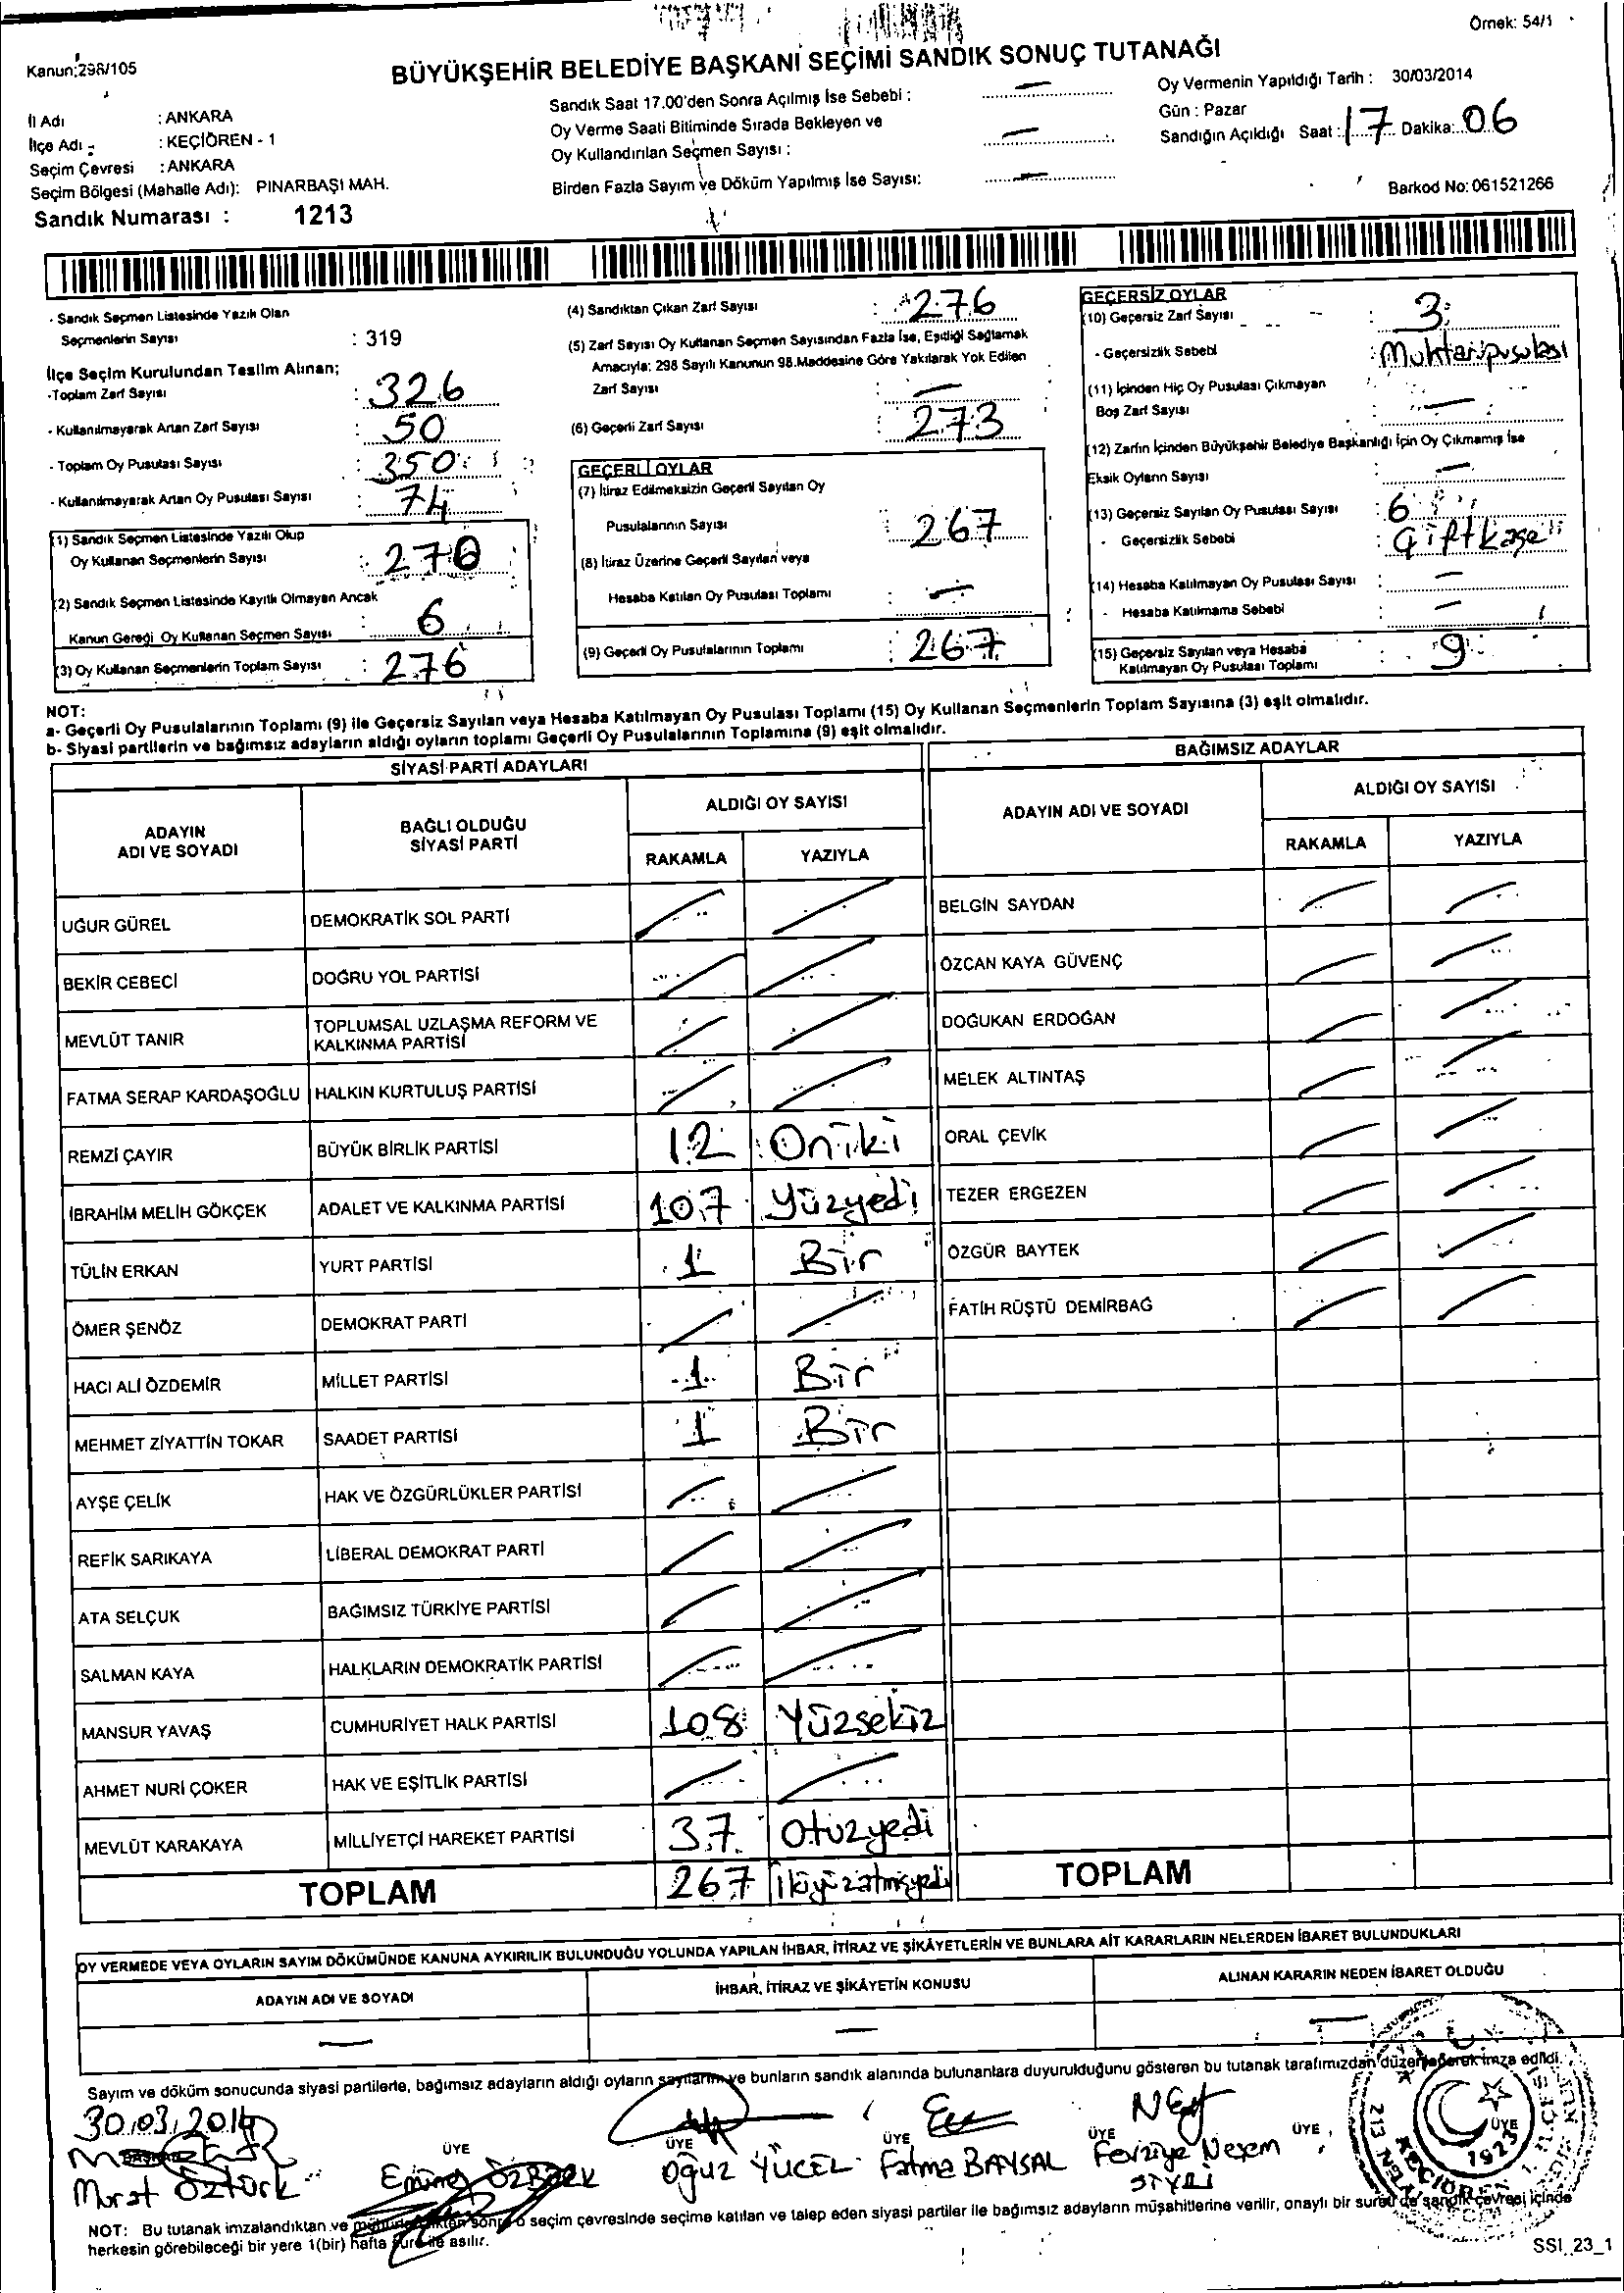 Örnek: 54/1
Kanun:298/105
BÜYÜKŞEHİR BELEDİYE BAŞKANI SEÇİMİ SANDIK SONUÇ TUTANAĞI
İl Adı : ANKARA
İlçe Adı : KEÇİÖREN - 1
Seçim Çevresi : ANKARA
Seçim Bölgesi (Mahalle Adı): PINARBAŞI MAH.
Sandık Numarası : 1213
Sandık Saat 17.00'den Sonra Açılmış İse Sebebi : —
Oy Verme Saati Bitiminde Sırada Bekleyen ve
Oy Kullandırılan Seçmen Sayısı : —
Birden Fazla Sayım ve Döküm Yapılmış İse Sayısı: —
Oy Vermenin Yapıldığı Tarih : 30/03/2014
Gün : Pazar
Sandığın Açıldığı Saat : 17 Dakika: 06
Barkod No: 061521266
- Sandık Seçmen Listesinde Yazılı Olan
Seçmenlerin Sayısı : 319
İlçe Seçim Kurulundan Teslim Alınan;
-Toplam Zarf Sayısı : 326
- Kullanılmayarak Artan Zarf Sayısı : 50
- Toplam Oy Pusulası Sayısı : 350
- Kullanılmayarak Artan Oy Pusulası Sayısı : 74
(1) Sandık Seçmen Listesinde Yazılı Olup
Oy Kullanan Seçmenlerin Sayısı : 270
(2) Sandık Seçmen Listesinde Kayıtlı Olmayan Ancak
Kanun Gereği Oy Kullanan Seçmen Sayısı : 6
(3) Oy Kullanan Seçmenlerin Toplam Sayısı : 276
(4) Sandıktan Çıkan Zarf Sayısı : 276
(5) Zarf Sayısı Oy Kullanan Seçmen Sayısından Fazla İse, Eşitliği Sağlamak
Amacıyla: 298 Sayılı Kanunun 98.Maddesine Göre Yakılarak Yok Edilen
Zarf Sayısı : —
(6) Geçerli Zarf Sayısı : 273
GEÇERLİ OYLAR
(7) İtiraz Edilmeksizin Geçerli Sayılan Oy
Pusulalarının Sayısı : 267
(8) İtiraz Üzerine Geçerli Sayılan veya
Hesaba Katılan Oy Pusulası Toplamı : —
(9) Geçerli Oy Pusulalarının Toplamı : 267
GEÇERSİZ OYLAR
(10) Geçersiz Zarf Sayısı : 3
- Geçersizlik Sebebi : Muhtar pusulası
(11) İçinden Hiç Oy Pusulası Çıkmayan
Boş Zarf Sayısı : —
(12) Zarfın İçinden Büyükşehir Belediye Başkanlığı İçin Oy Çıkmamış İse
Eksik Oyların Sayısı : —
(13) Geçersiz Sayılan Oy Pusulası Sayısı : 6
- Geçersizlik Sebebi : Çift kaşeli
(14) Hesaba Katılmayan Oy Pusulası Sayısı : —
- Hesaba Katılmama Sebebi : —
(15) Geçersiz Sayılan veya Hesaba
Katılmayan Oy Pusulası Toplamı : 9
NOT:
a- Geçerli Oy Pusulalarının Toplamı (9) ile Geçersiz Sayılan veya Hesaba Katılmayan Oy Pusulası Toplamı (15) Oy Kullanan Seçmenlerin Toplam Sayısına (3) eşit olmalıdır.
b- Siyasi partilerin ve bağımsız adayların aldığı oyların toplamı Geçerli Oy Pusulalarının Toplamına (9) eşit olmalıdır.
SİYASİ PARTİ ADAYLARI
ADAYIN
ADI VE SOYADI
BAĞLI OLDUĞU
SİYASİ PARTİ
ALDIĞI OY SAYISI
RAKAMLA YAZIYLA
UĞUR GÜREL DEMOKRATİK SOL PARTİ
BEKİR CEBECİ DOĞRU YOL PARTİSİ
MEVLÜT TANIR TOPLUMSAL UZLAŞMA REFORM VE
KALKINMA PARTİSİ
FATMA SERAP KARDAŞOĞLU HALKIN KURTULUŞ PARTİSİ
REMZİ ÇAYIR BÜYÜK BİRLİK PARTİSİ 12 Oniki
İBRAHİM MELİH GÖKÇEK ADALET VE KALKINMA PARTİSİ 107 Yüzyedi
TÜLİN ERKAN YURT PARTİSİ 1 Bir
ÖMER ŞENÖZ DEMOKRAT PARTİ
HACI ALİ ÖZDEMİR MİLLET PARTİSİ 1 Bir
MEHMET ZİYATTİN TOKAR SAADET PARTİSİ 1 Bir
AYŞE ÇELİK HAK VE ÖZGÜRLÜKLER PARTİSİ
REFİK SARIKAYA LİBERAL DEMOKRAT PARTİ
ATA SELÇUK BAĞIMSIZ TÜRKİYE PARTİSİ
SALMAN KAYA HALKLARIN DEMOKRATİK PARTİSİ
MANSUR YAVAŞ CUMHURİYET HALK PARTİSİ 108 Yüzsekiz
AHMET NURİ ÇOKER HAK VE EŞİTLİK PARTİSİ
MEVLÜT KARAKAYA MİLLİYETÇİ HAREKET PARTİSİ 37 Otuzyedi
TOPLAM 267 İkiyüzatmışyedi
BAĞIMSIZ ADAYLAR
ADAYIN ADI VE SOYADI
ALDIĞI OY SAYISI
RAKAMLA YAZIYLA
BELGİN SAYDAN
ÖZCAN KAYA GÜVENÇ
DOĞUKAN ERDOĞAN
MELEK ALTINTAŞ
ORAL ÇEVİK
TEZER ERGEZEN
ÖZGÜR BAYTEK
FATİH RÜŞTÜ DEMİRBAĞ
TOPLAM
OY VERMEDE VEYA OYLARIN SAYIM DÖKÜMÜNDE KANUNA AYKIRILIK BULUNDUĞU YOLUNDA YAPILAN İHBAR, İTİRAZ VE ŞİKÂYETLERİN VE BUNLARA AİT KARARLARIN NELERDEN İBARET BULUNDUKLARI
ADAYIN ADI VE SOYADI
İHBAR, İTİRAZ VE ŞİKÂYETİN KONUSU
ALINAN KARARIN NEDEN İBARET OLDUĞU
— — —
Sayım ve döküm sonucunda siyasi partilerle, bağımsız adayların aldığı oyların sayılarını ve bunların sandık alanında bulunanlara duyurulduğunu gösteren bu tutanak tarafımızdan düzenlenerek imza edildi.
30.03.2014
BAŞKAN ÜYE ÜYE ÜYE ÜYE ÜYE ÜYE
Murat Öztürk Emine Özbek Oğuz YÜCEL Fatma BAYSAL Fevziye Neşem
1923
KEÇİÖREN
NOT: Bu tutanak imzalandıktan ve mühürlendikten sonra o seçim çevresinde seçime katılan ve talep eden siyasi partiler ile bağımsız adayların müşahitlerine verilir, onaylı bir sureti de sandık çevresi içinde
herkesin görebileceği bir yere 1(bir) hafta süre ile asılır.
SSI_23_1